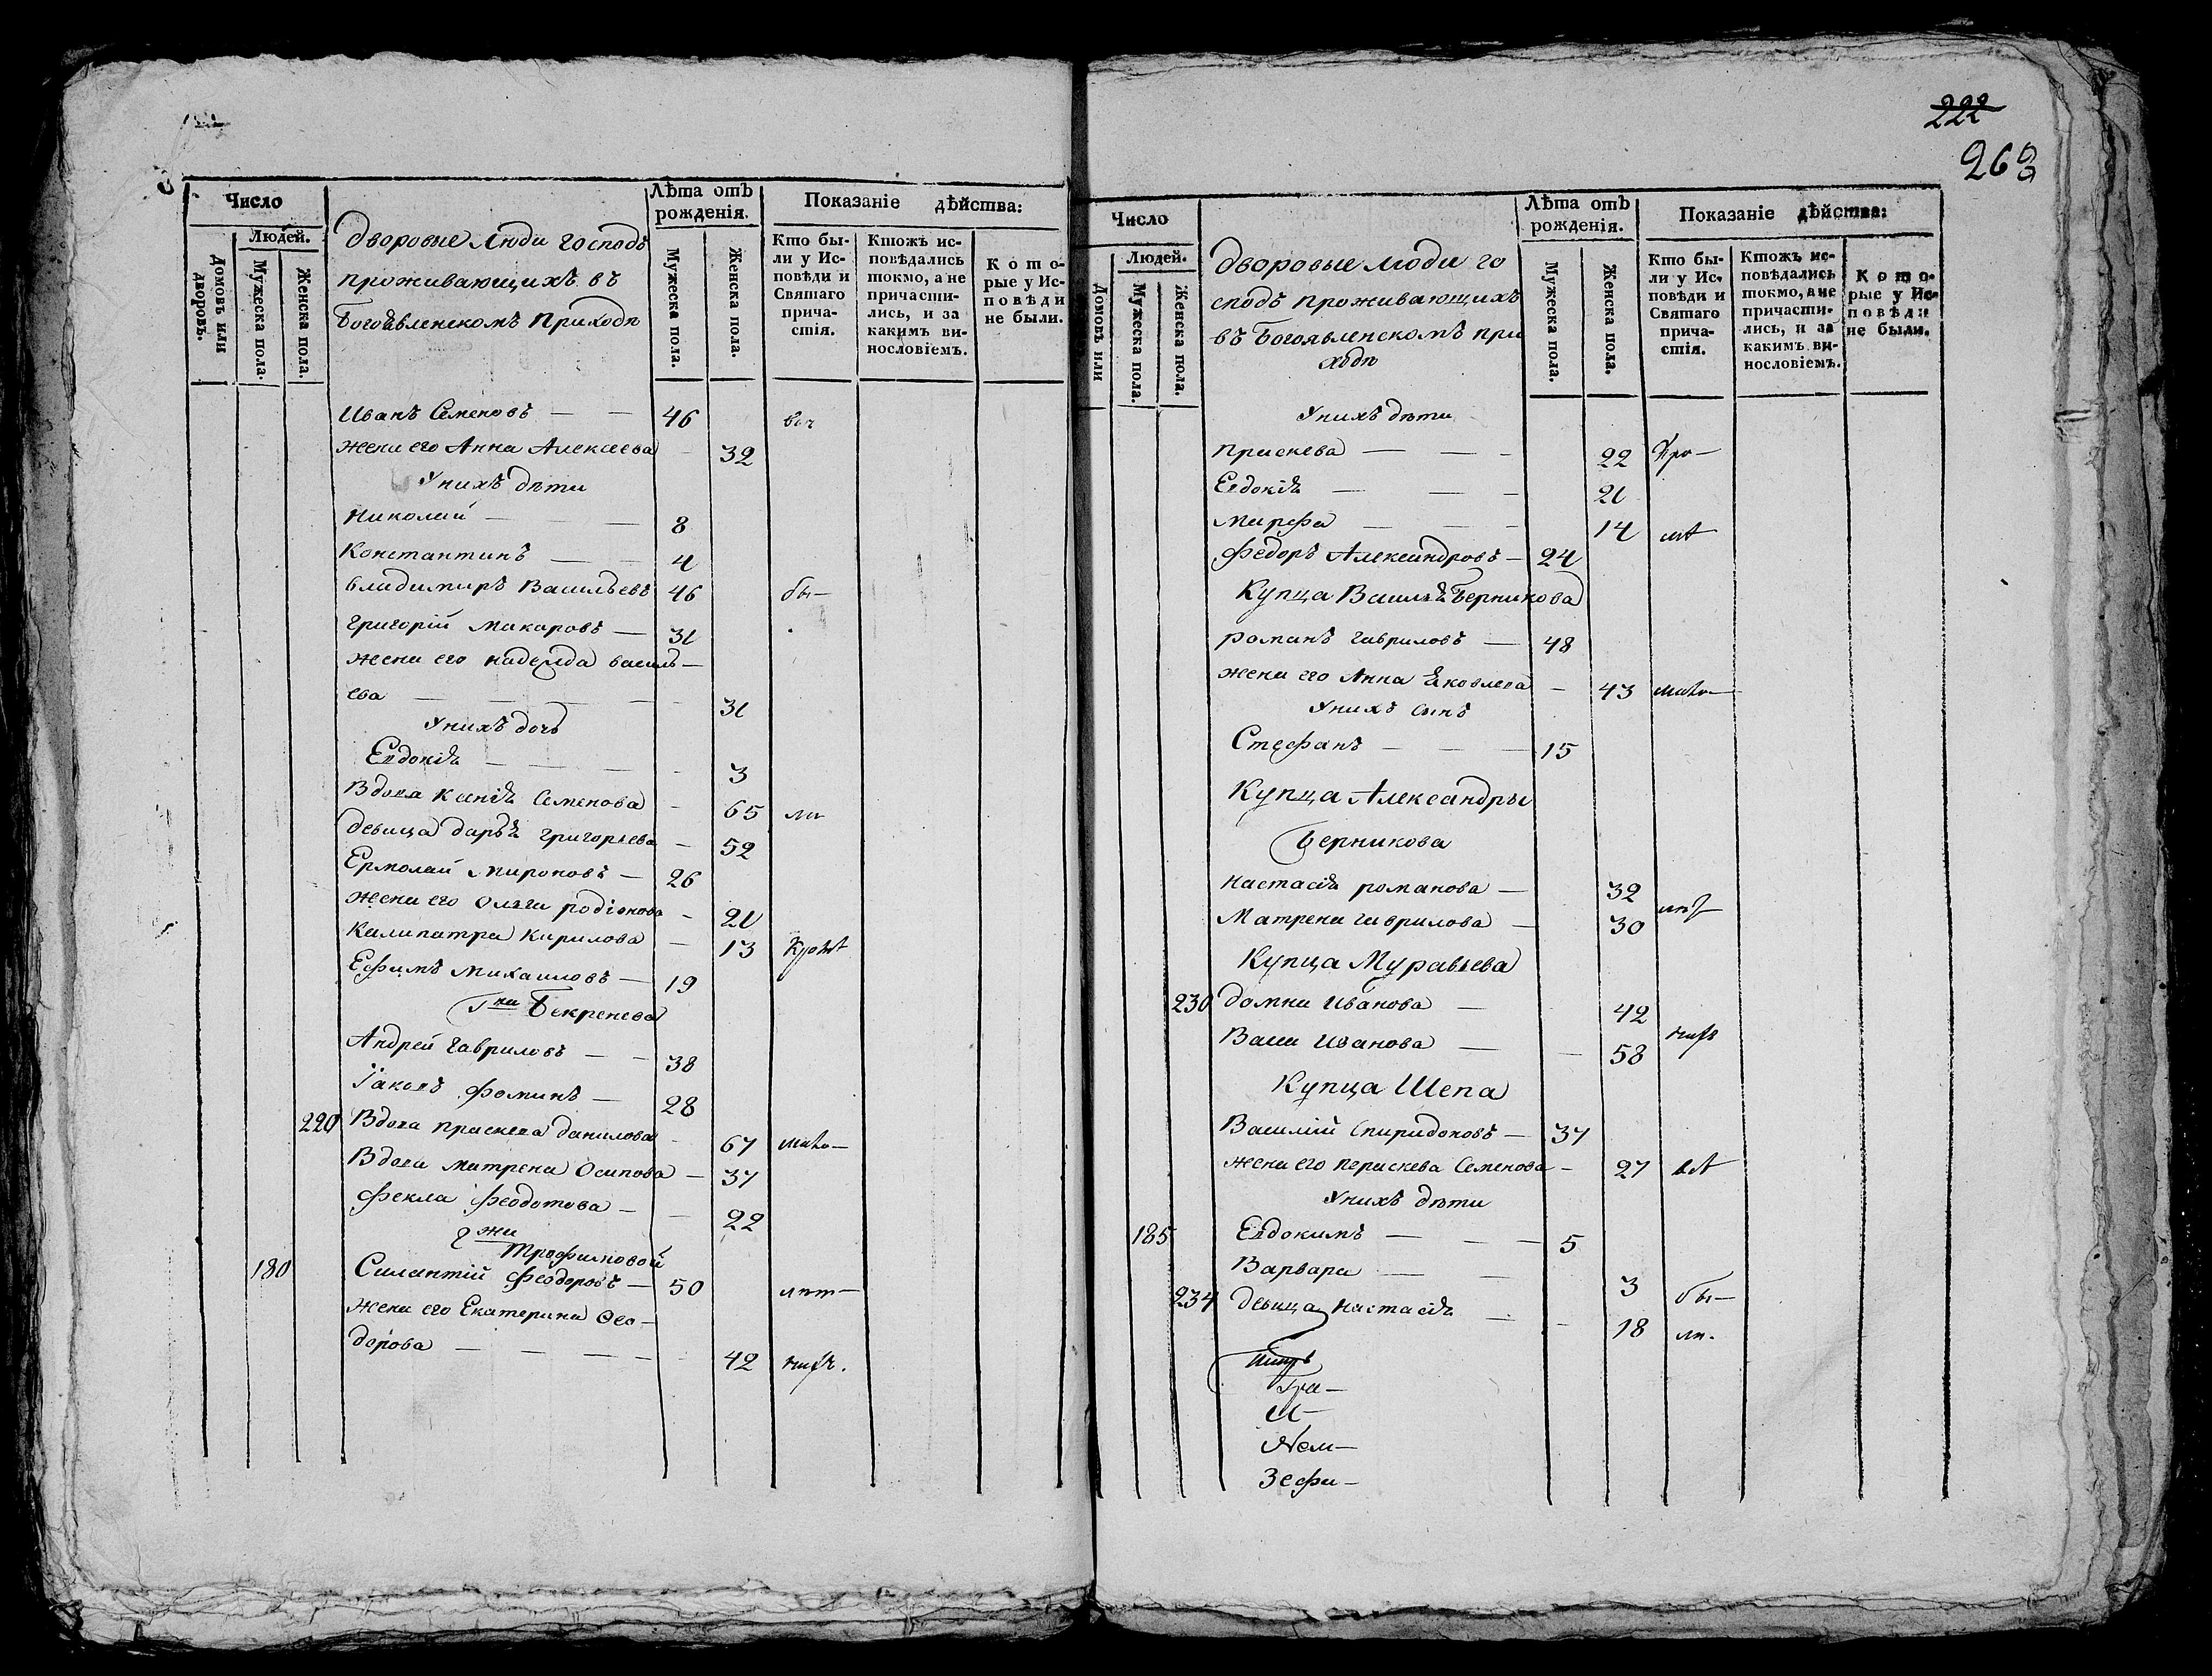 Число
Людей.
Домовъ или дворовъ.
Мужеска пола.
Женска пола.
Дворовые Люди господъ
проживающихъ въ
Богоявленскомъ Приходѣ
Лѣта отъ рожденія.
Мужеска пола.
Женска пола.
Показаніе дѣйства:
Кто бы-
ли у Ис-
повѣди и
Святаго
прича-
стія.
Ктожъ ис-
повѣдались
токмо, а не
причасти-
лись, и за
какимъ ви-
нословіемъ.
Кото-
рые у Ис-
повѣди
не были.
Иванъ Семеновъ — — 46
жена его Анна Алексеева 32
У нихъ дѣти
Николай — — 8
Константинъ — — 4
Владимиръ Васильевъ 46 бы—
Григорій Макаровъ — 31
жена его надежда василь—
ева — — — 31
У нихъ дочь
Евдокія — — — 3
Вдова Ксенія Семенова 65 ли
девица дарья григорьева 52
Ермолай Мироновъ — 26
жена его Ольга родіонова 21
Калипатра Кирилова — 13
Ефимъ Михаиловъ — 19
Гна Бекренева
Андрей Гавриловъ — — 38
Іаковъ Фоминъ — 28
220 Вдова праскева данилова 67
Вдова матрена Осипова — 37
Фекла Феодотова — 22
гжи
Трофимовой
180 Силантій Феодоровъ — 50
жена его Екатерина Фео—
дорова — — — 42
222
263
Число
Людей.
Домовъ или
Мужеска пола.
Женска пола.
Дворовые люди го
сподъ проживающихъ
въ Богоявленскомъ при
ходѣ
Лѣта отъ рожденія.
Мужеска пола.
Женска пола.
Показаніе дѣйства:
Кто бы-
ли у Ис-
повѣди и
Святаго
прича-
стія.
Ктожъ ис-
повѣдались
токмо, а не
причасти-
лись, и за
какимъ ви-
нословіемъ.
Кото-
рые у Ис-
повѣди
не были.
У нихъ дѣти
праскева — — - 22
Евдокія — — - 21
Марфа — — - 14
Федоръ Александровъ — 24
Купца Василья Берникова
романъ гавриловъ — 48
жена его Анна Яковлева — 43
У нихъ сынъ
Стефанъ — — — 15
Купца Александры
Берникова
настасія романова — 32
Матрена гаврилова — 30
Купца Муравьева
230 домна Иванова — 42
Васса Иванова — 58
Купца Шепа
Василій Спиридоновъ — 37
жена его пераскева Семенова — 27
У нихъ дѣти
185 Евдокимъ — — — 5
Варвара — — 3 бы—
234 девица настасія — 18 ли.